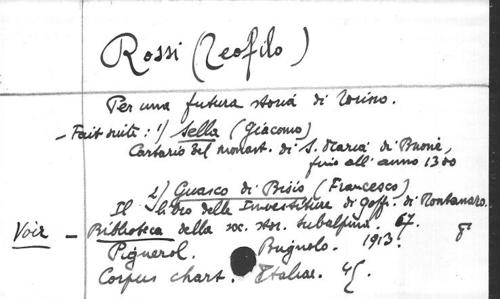 Rossi (Teofilo)
Per una futura storia di Torino.
- Fait suite : 1) Sella (Giacomo)
Cartario del monast. di S. Maria di Buone,
fino all' anno 1300
2) Guasco di Bisio (Francesco)
Il libro delle Investiture di Goff. di Montanaro.
Voir - Biblioteca della soc. stor. subalpina. 67. 8
Pignerol. Bugnolo. 1913.
Corpus chart. Italiae. 45.